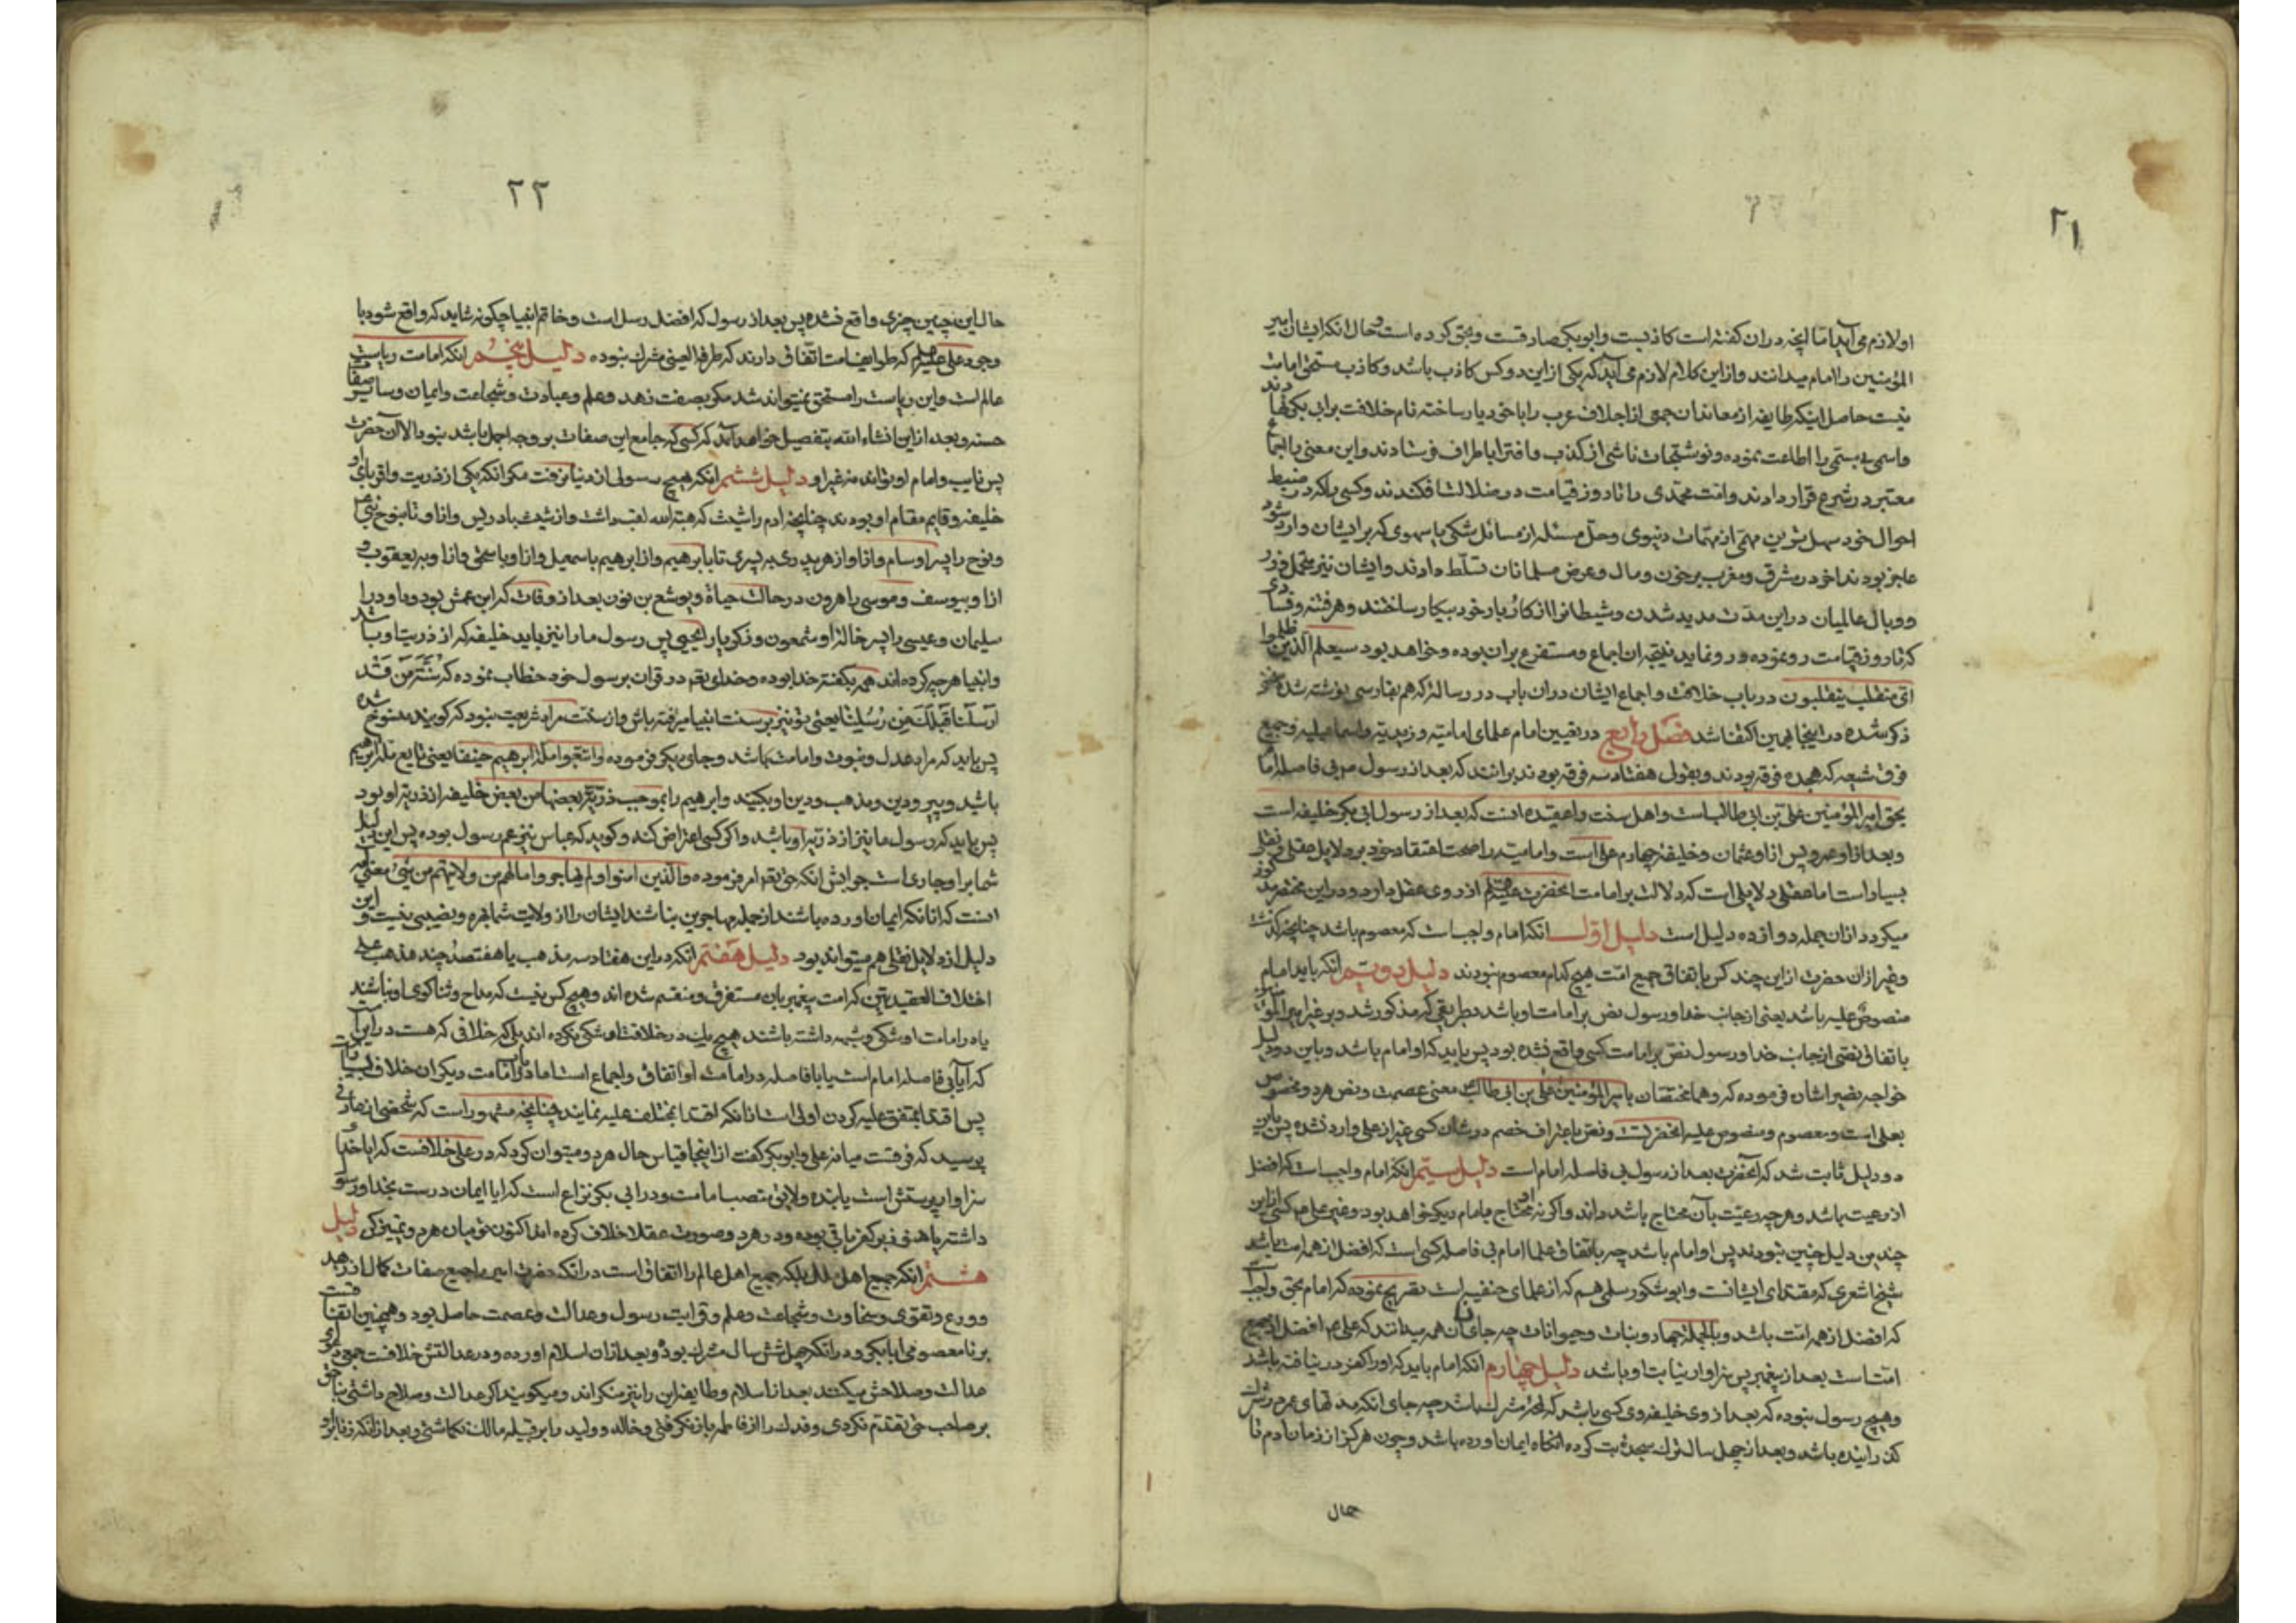 ۲۱
او لازم می آید اما آنچه در ان کفته است کاذبست و ابوبکر صادقست و بحق کرده است و حال انکه ایشان امیر
المؤمنین را امام میدانند و از این کلام لازم می آید که یکی از این دو کس کاذب باشد و کاذب مستحق امامت
نیست حاصل اینکه طایفه از معاندان جمعی از اجلاف عرب را با خود یار ساخته نام خلافت برابی بکر نهادند
و اسمی بی مسمی را اطاعت نموده و نوشتجات ناشی از کذب و افترا باطراف فرستادند و این معنی را اجماع
معتبر در شرع قرار دادند و امت محمدی را تا روز قیامت در ضلالت افکندند و کسی را که در ضبط
احوال خود سهل ترین مهمی از مهمات دنیوی و حل مسئله از مسائل شکی یا سهوی که بر ایشان وارد شود
عاجز بودند اخر در مشرق و مغرب بر خون و مال و عرض مسلمانان تسلط دادند و ایشان نیز متحمل وزر
و وبال عالمیان در این مدت مدید شدن و شیطانرا از کار و بار خود بیکار ساختند و هر فتنه و فسادی
که تا روز قیامت رو نموده و رو نماید نتیجه ان اجماع و متفرع بران بوده و خواهد بود سیعلم الذین ظلموا
ای منقلب ینقلبون در باب خلافت و اجماع ایشان دران باب در رساله که هم بفارسی نوشته شده
ذکر شده در اینجا بهمین اکتفا شد فصل رابع در تعیین امام علمای امامیه و زیدیه و اسماعیلیه و جمیع
فرق شیعه که هجده فرقه بودند و بقولی هفتاد سه فرقه بودند برانند که بعد از رسول ص بی فاصله امام
بحق امیر المؤمنین علی بن ابی طالب است و اهل سنت را عقیده انست که بعد از رسول ابی بکر خلیفه است
و بعد از او عمر و پس از او عثمان و خلیفه چهارم علی است و امامیه را صحت اعتقاد خود بر دلایل عقلی و نقلی
بسیار است اما عقلی دلایلی است که دلالت بر امامت انحضرت علیه السلم از روی عقل دارد و در این مختصر مذکور
میکردد ازان جمله دوازده دلیل است دلیل اول انکه امام واجب است که معصوم باشد چنانچه کذشت
و غیر از ان حضرت از این چند کس باتفاق جمیع امت هیچ کدام معصوم نبودند دلیل دویم انکه باید امام
منصوص علیه باشد یعنی از جانب خدا و رسول نص بر امامت او باشد بطریقی که مذکور شد و بر غیر امیر المؤمنین
باتفاق نصی از جانب خدا و رسول نص بر امامت کسی واقع نشده بود پس باید که او امام باشد و باین دو دلیل
خواجه نصیر اشاره فرموده که و هما مختصان بامیر المؤمنین علی بن ابی طالب یعنی عصمت و نص هر دو مخصوص
بعلی است و معصوم و منصوص علیه انحضرتست و نص باعتراف خصم در شان کسی غیر از علی وارد نشده پس باین
دو دلیل ثابت شد که انحضرت بعد از رسول بی فاصله امام است دلیل سیم انکه امام واجب است که افضل
از رعیت باشد و هر چه رعیت بآن محتاج باشد داند و اکر نه او محتاج بامام دیکر خواهد بود و غیر علی ع کسی از این
چند من دلیل چنین نبودند پس او امام باشد چه باتفاق علما امام بی فاصله کسی است که افضل از همه امت باشد
شیخ اشعری که مقتدای ایشانست و ابو شکور سلمی هم که از علمای حنفیه است تصریح نموده که امام بحق واجب است
که افضل از همه امت باشد و بالجمله جماد و نبات و حیوانات چه جای انسان همه میدانند که علی ع افضل از جمیع
امت است بعد از پیغمبر پس سزاوار نیابت او باشد دلیل چهارم انکه امام باید که او را کفر در نیافته باشد
و هیچ رسول نبوده که بعد از وی خلیفه وی کسی باشد که مشرک باشد چه جای انکه مدتهای عمر در شرک
کذرانیده باشد و بعد از چهل سال ترک سجده بت کرده انکاه ایمان اورده باشد و چون هرکز از زمان ادم تا
حال
۲۲
حال این چنین چیزی واقع نشده پس بعد از رسول که افضل رسل است و خاتم انبیا چکونه شاید که واقع شود با
وجود علی علیه السلم که طوایف امت اتفاق دارند که طرفة العینی مشرک نبوده دلیل پنجم انکه امامت ریاست
عالم است و این ریاست را مستحق نمیتواند شد مکر بصفت زهد و علم و عبادت و شجاعت و ایمان و سایر صفات
حسنه و بعد از این انشاء الله بتفصیل خواهد آمد که کسی که جامع این صفات بر وجه اجمل باشد نبود الا آن حضرت
پس نایب و امام او تواند نه غیر او دلیل ششم انکه هیچ رسولی از دنیا نرفت مکر انکه یکی از ذریت و اقربای او
خلیفه و قایم مقام او بودند چنانچه ادم را شیث که هبة الله لقب داشت و از شیث بادریس و از او تا بنوح نبی ع
و نوح را پسر او سام و از او از هر پدری به پسری تا بابرهیم و از ابرهیم باسمعیل و از او باسحق و از او به یعقوب و
از او بیوسف و موسی را هرون در حالت حیاة و یوشع بن نون بعد از وفات که ابن عمش بود و داود را
سلیمان و عیسی را پسر خاله او شمعون و زکریا را یحیی پس رسول ما را نیز باید خلیفه که از ذریت او باشد
و انبیا هر چه کرده اند همه بکفته خدا بوده و خدای تعالی در قران برسول خود خطاب نموده که سُنَّةَ مَن قَد
اَرسَلنا قَبلَکَ مِن رُسُلِنا یعنی تو نیز بر سنت انبیا میرفته باش و از سنت مراد شریعت نبود که کویند منسوخ شده
پس باید که مراد عدل و نبوت و امامت باشد و جای دیکر فرموده واتبعوا ملة ابرهیم حنیفا یعنی تابع ملة ابرهیم
باشید و پیرو دین و مذهب و دین او بکنید و ابرهیم را بموجب ذریة بعضها من بعض خلیفه از ذریه او بود
پس باید که رسول ما نیز از ذریه او باشد و اکر کسی اعتراض کند و کوید که عباس نیز عم رسول بوده پس این دلیل
شما بر او جاری است جوابش انکه حق تعالی امر فرموده والذین امنوا ولم یهاجروا مالکم من ولایتهم من شیئ معنی آیه
انست که انانکه ایمان اورده باشند از جمله مهاجرین نباشند ایشان را از ولایت شما بهره و نصیبی نیست و این
دلیل از دلایل نقلی هم میتواند بود دلیل هفتم انکه در این هفتاد سه مذهب یا هفتصد چند مذهب علی
اختلاف العقیدتین که امت پیغمبر بان متفرق و منقسم شده اند و هیچ کس نیست که مداح و ثناکوی او نباشند
یا در امامت او شکی و شبهه داشته باشند هیچ یک در خلافت او شکی نکرده اند بلکه خلافی که هست در این است
که آیا بی فاصله امام است یا با فاصله در امامت او اتفاق و اجماع است اما در امامت دیکران خلاف بسیار است
پس اقتدا بمتفق علیه کردن اولی است از انکه اقتدا بمختلف علیه نمایند چنانچه مشهور است که شخصی از عارفی
پرسید که فرقست میانه علی و ابوبکر کفت از اینجا قیاس حال هر دو میتوان کرد که در علی خلافست که ایا خدا و
سزاوار پرستش است یا بنده و لایق منصب امامت و در ابی بکر نزاع است که ایا ایمان درست بخدا و رسول
داشته یا هنوز بر کفر باقی بوده و در هر دو صورت عقلا خلاف کرده اند اکنون تو میان هر دو تمیز کن دلیل
هشتم انکه جمیع اهل ملل بلکه جمیع اهل عالم را اتفاق است در انکه حضرت امیر را جمیع صفات کمال از زهد
و ورع و تقوی و سخاوت و شجاعت و علم و قرابت رسول و عدالت و عصمت حاصل بود و همچنین اتفاقست
بر نامعصومی ابابکر و در انکه چهل شش سال مشرک بود و بعد از ان اسلام اورده و در عدالتش خلافست جمعی
عدالت و صلاحش میکنند بعد از اسلام و طایفه این را نیز منکراند و میکویند اکر عدالت و صلاح داشتی بناحق
بر صاحب حق تقدم نکردی و فدک را از فاطمه باز نکرفتی و خالد و ولید را بر قبیله مالک نکماشتی و بعد از انکه زنا